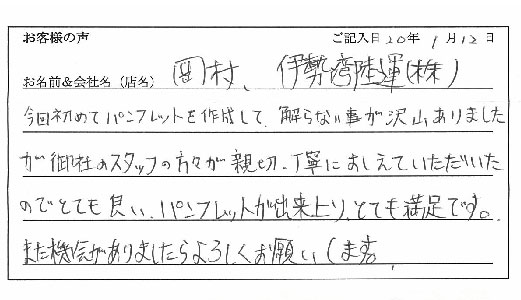 お客様の声　ご記入日20年1月12日
お名前&会社名（店名）　岡村、伊勢湾陸運(株)
今回初めてパンフレットを作成して、解らない事が沢山ありました
が御社のスタッフの方々が親切、丁寧におしえていただいた
のでとても良い、パンフレットが出来上り、とても満足です。
また機会がありましたらよろしくお願いします